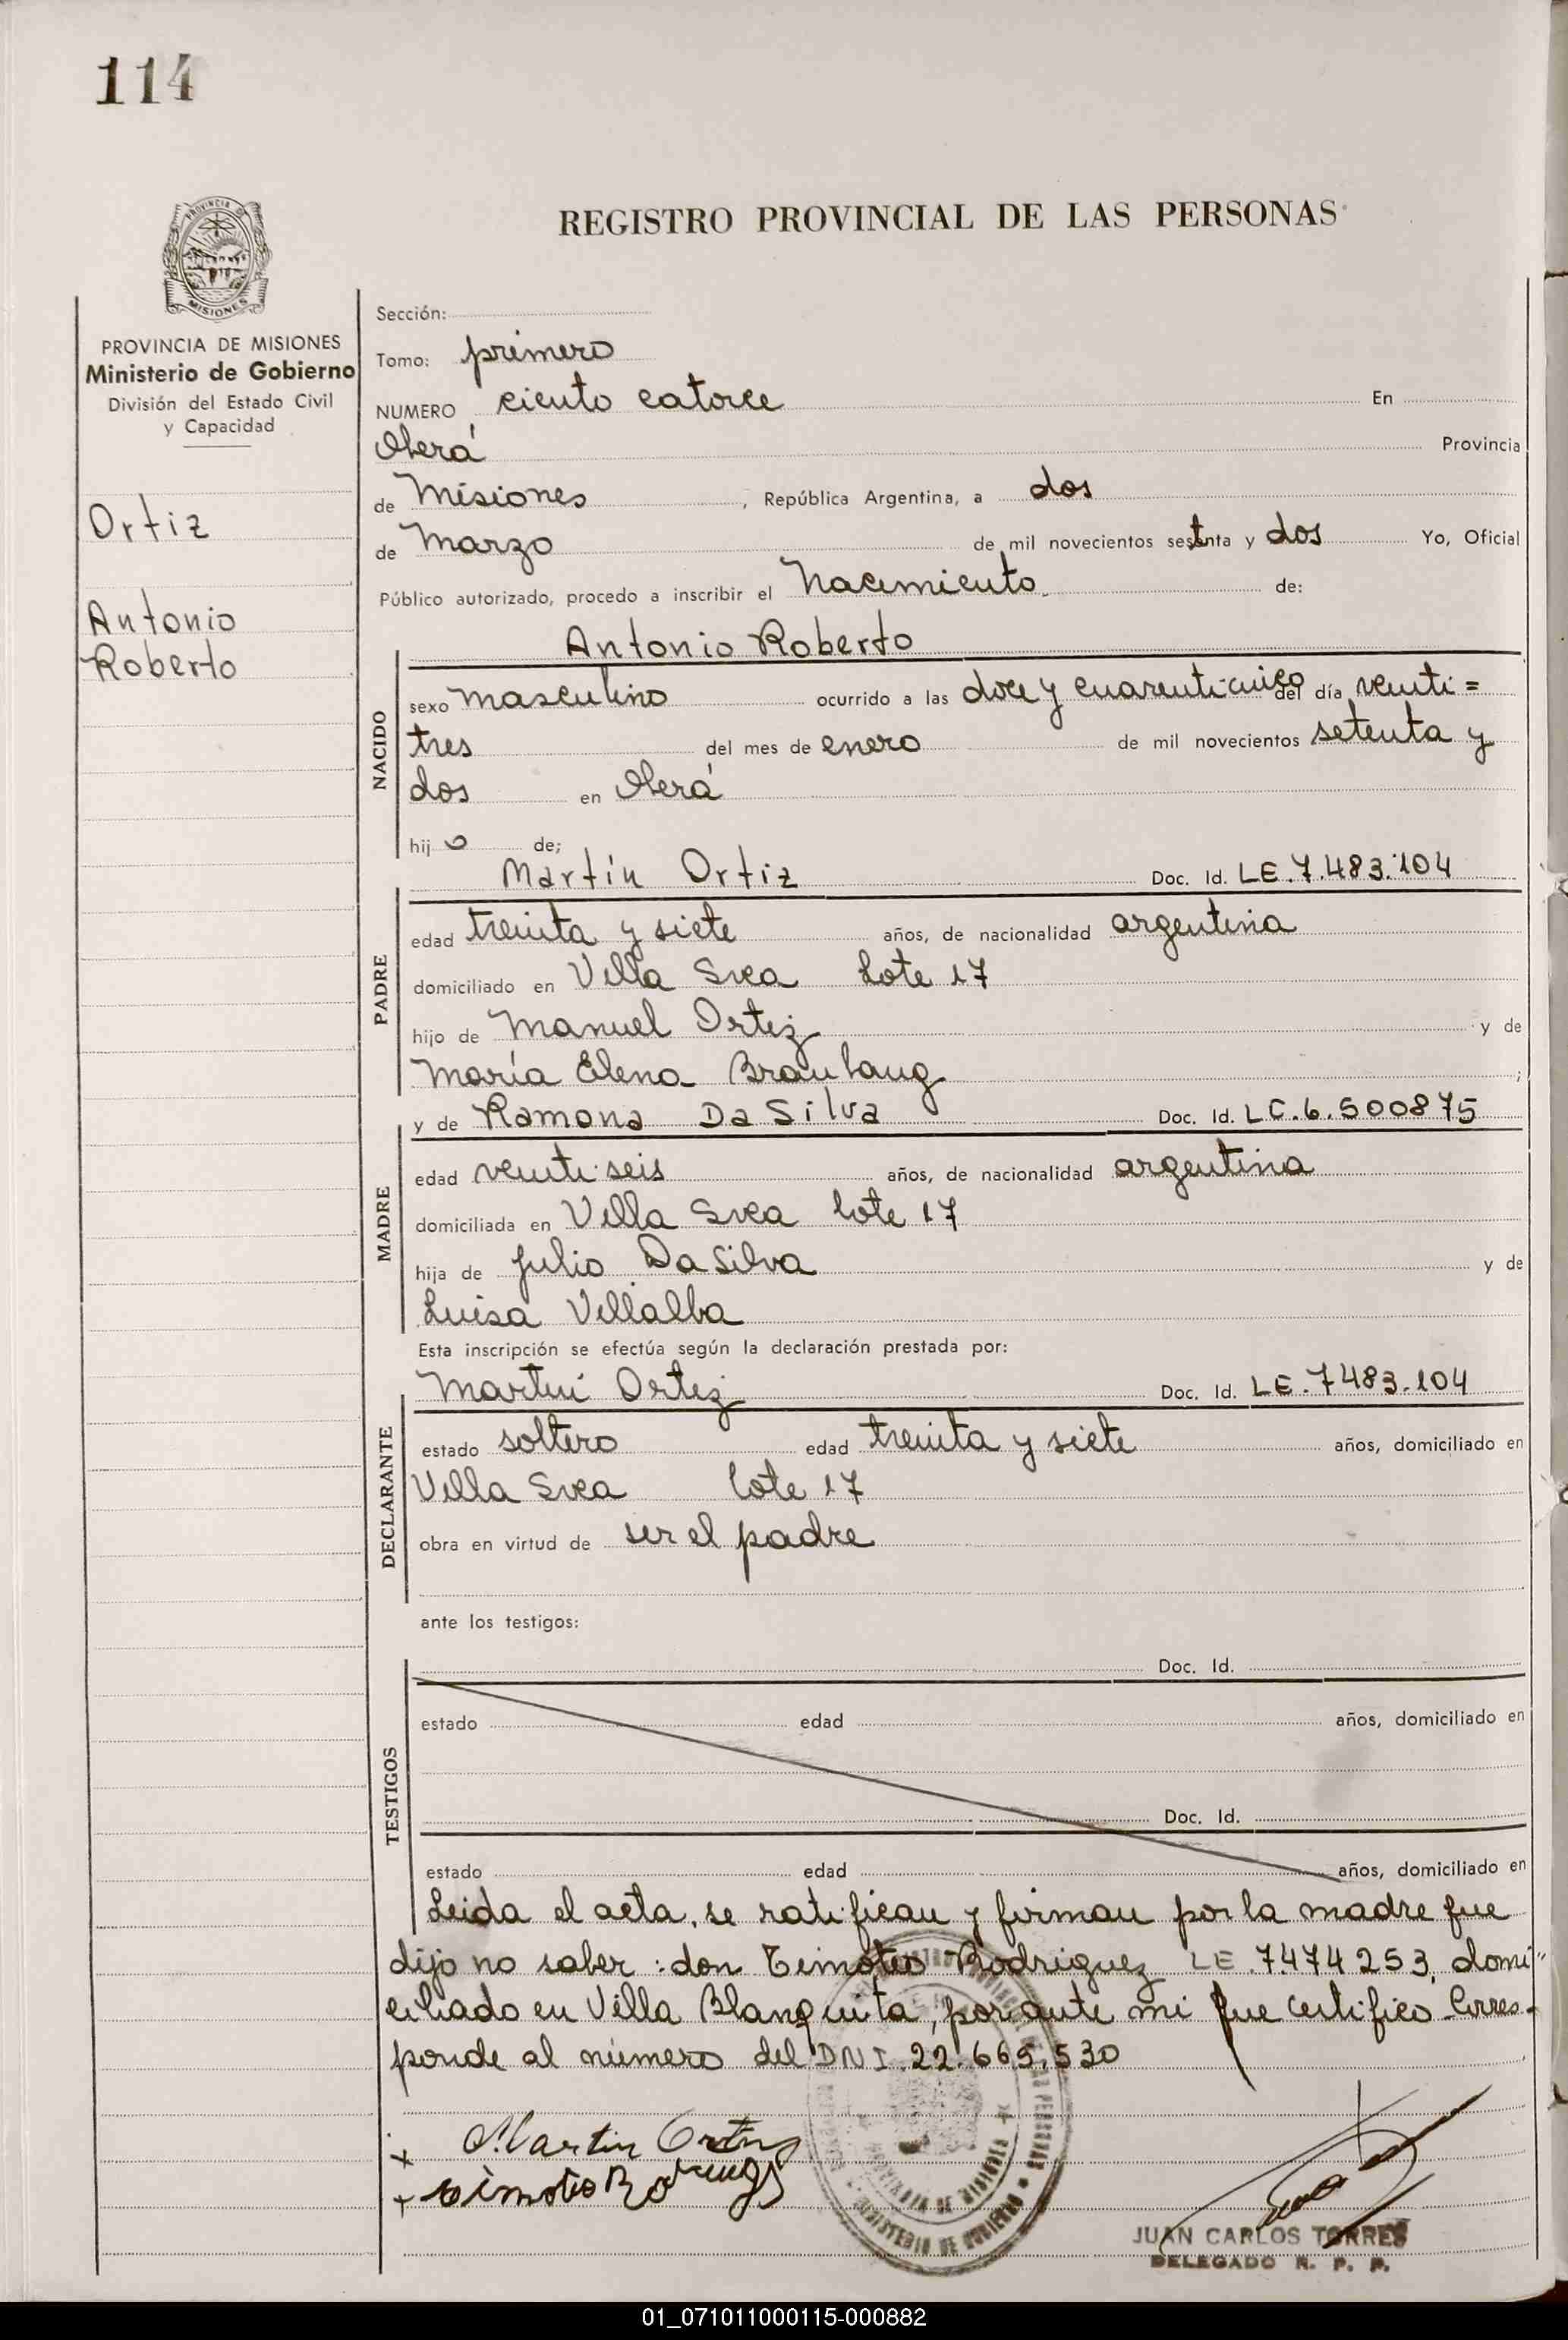 114
PROVINCIA DE MISIONES
REGISTRO PROVINCIAL DE LAS PERSONAS
PROVINCIA DE MISIONES
Ministerio de Gobierno
División del Estado Civil
y Capacidad
Ortiz
Antonio
Roberto
Sección:
Tomo: primero
NUMERO ciento catorce En
Oberá Provincia
de Misiones, República Argentina, a dos
de Marzo de mil novecientos setenta y dos Yo, Oficial
Público autorizado, procedo a inscribir el Nacimiento de:
Antonio Roberto
NACIDO
sexo masculino ocurrido a las doce y cuarenticinco del día venti=
tres del mes de enero de mil novecientos setenta y
dos en Oberá
hijo de;
Martín Ortiz Doc. Id. LE.7.483.104
PADRE
edad treinta y siete años, de nacionalidad argentina
domiciliado en Villa Svea Lote 17
hijo de Manuel Ortiz y de
María Elena Braulaug;
y de Ramona Da Silva Doc. Id. LC.6.500875
MADRE
edad veintiseis años, de nacionalidad argentina
domiciliada en Villa Svea lote 17
hija de Julio Da Silva y de
Luisa Villalba
Esta inscripción se efectúa según la declaración prestada por:
Martín Ortiz Doc. Id. LE.7483.104
DECLARANTE
estado soltero edad treinta y siete años, domiciliado en
Villa Svea lote 17
obra en virtud de ser el padre
ante los testigos:
Doc. Id.
TESTIGOS
estado edad años, domiciliado en
Doc. Id.
estado edad años, domiciliado en
Leida el acta, se ratifican y firman por la madre que
dijo no saber : don Timoteo Rodriguez LE.7474253, domi"
ciliado en Villa Blanquita, por ante mi que certifico. Corres-
ponde al número del DNI.22.665.530
x Martin Ortiz
x Timoteo
JUAN CARLOS TORRES
DELEGADO R. P. P.
01_071011000115-000882